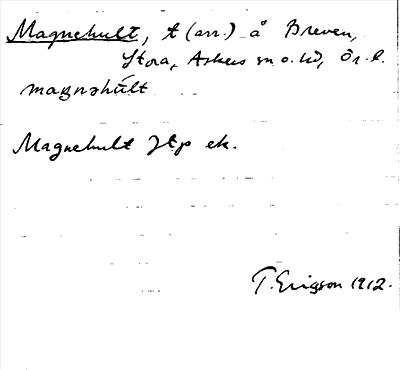 Magnehult, t (arr.) å Breven,
Stora, Askers sn o. hd, Ör. l.
maŋnəhúlt
Magnehult Jtp ek.
T. Ericsson 1912.